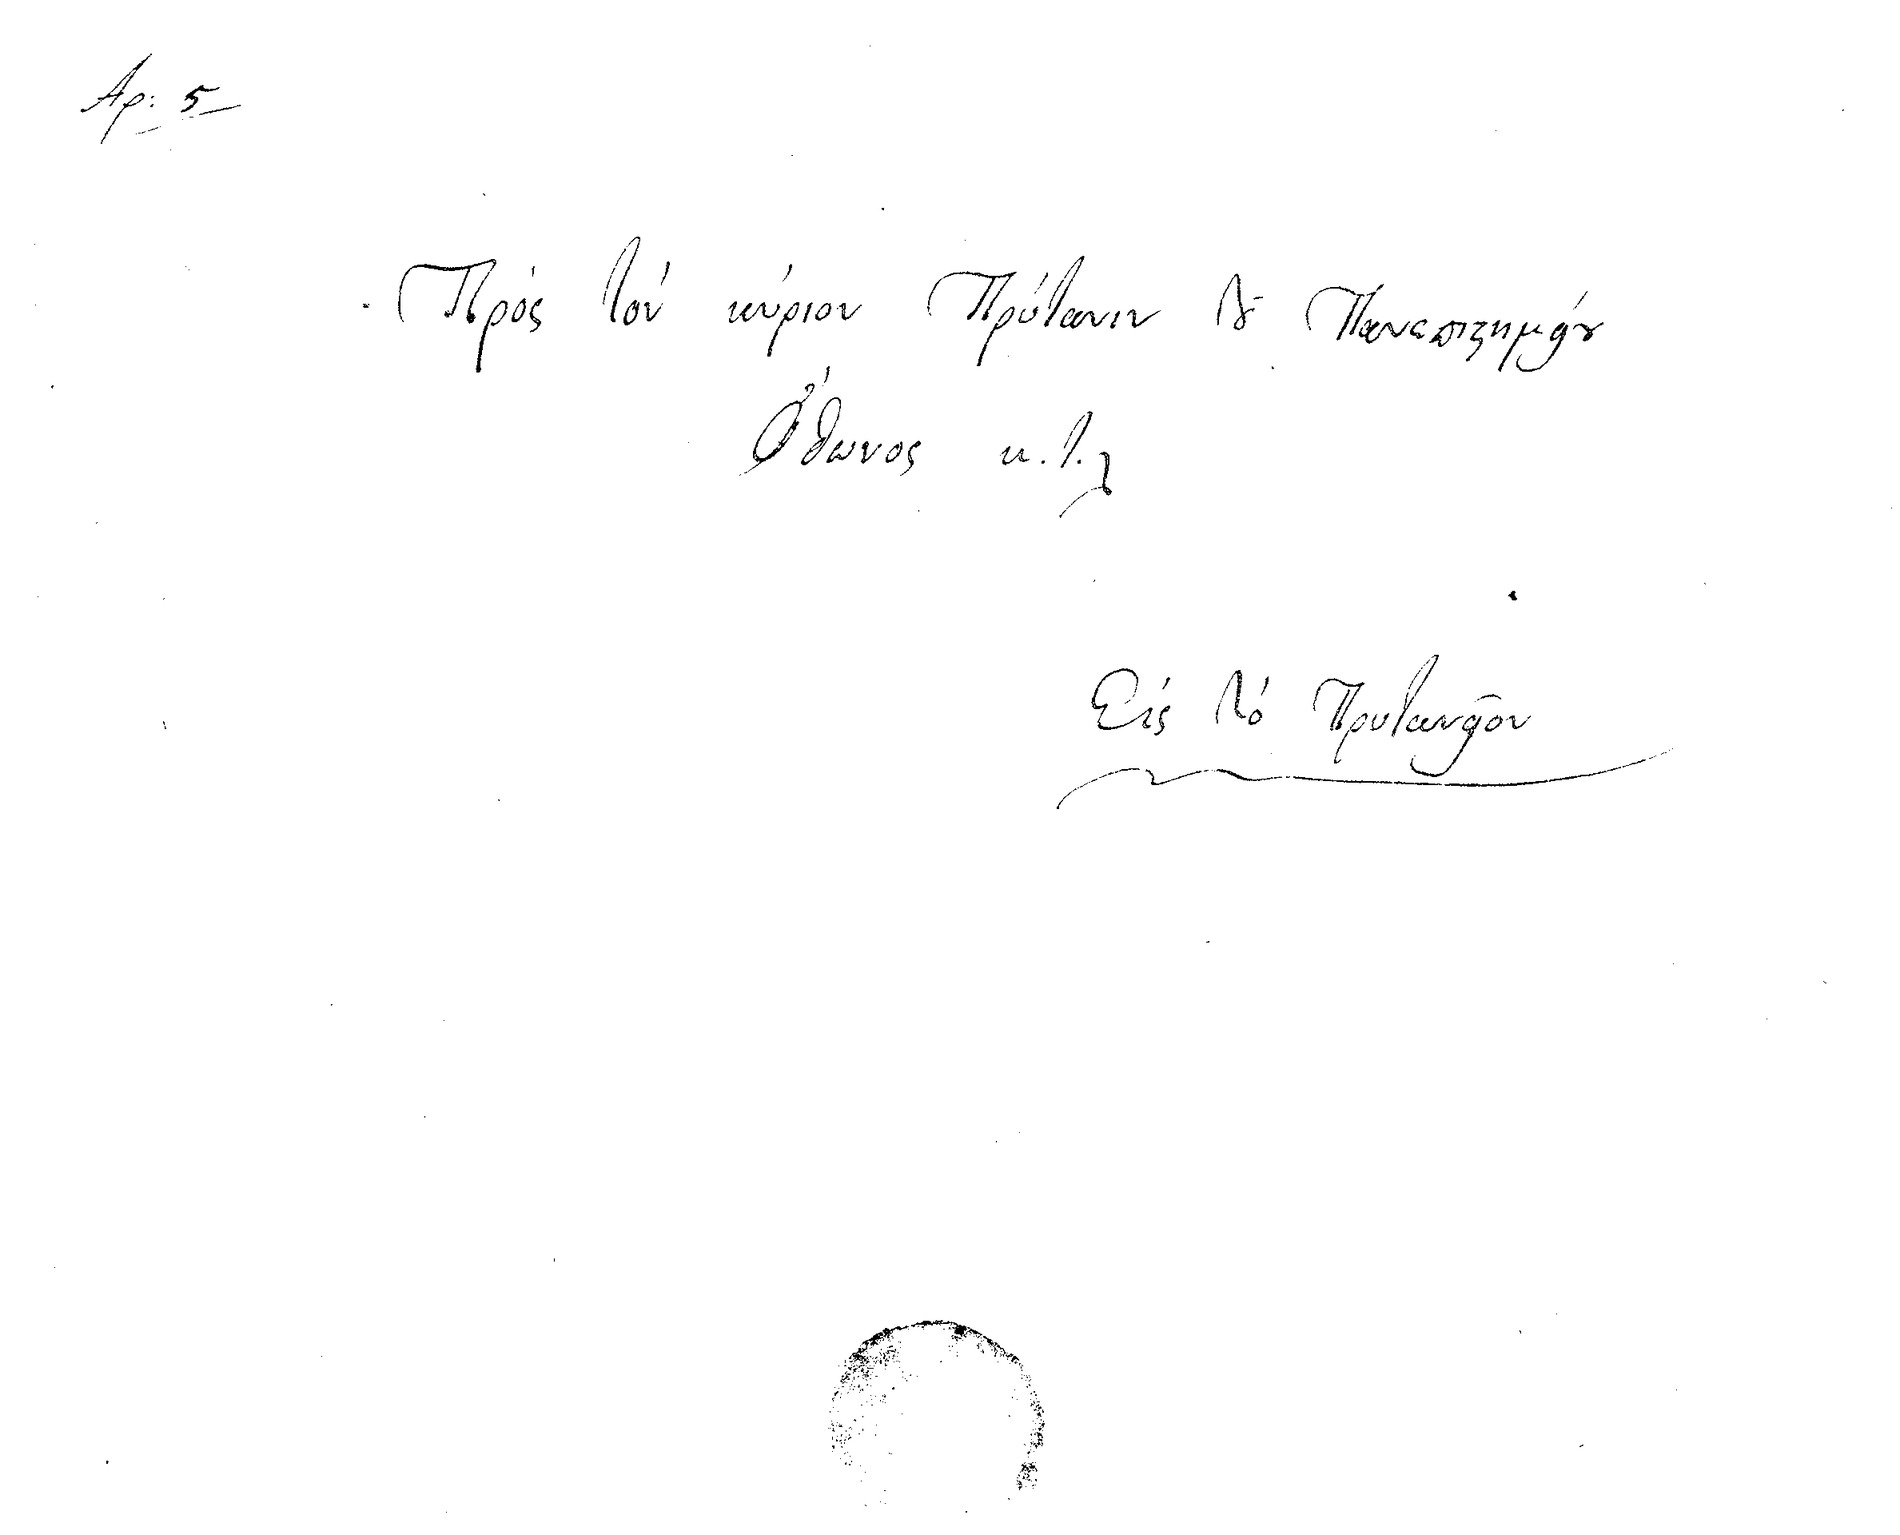 Αρ: 5
Πρὸς τὸν κύριον Πρύτανιν τȣ͂ Πανεπιϛημείȣ
Ὄθωνος κ.τ.λ
Εἰς τὸ Πρυτανεῖον